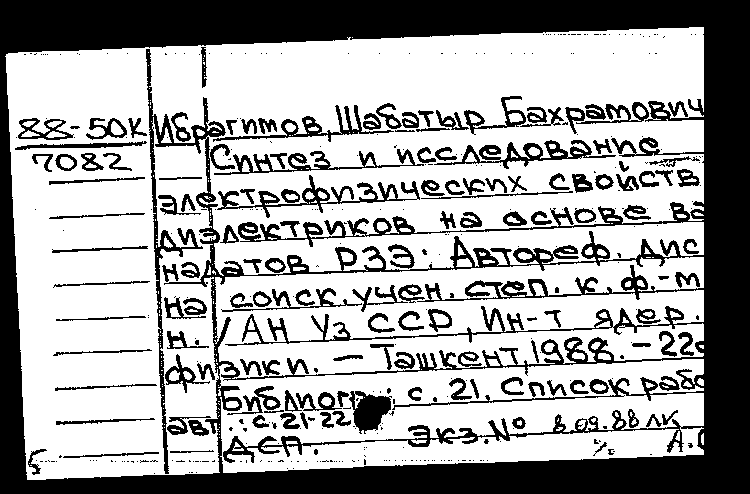 88-50К Ибрагимов, Шабатыр Бахрамович
7082 Синтез и исследование
электрофизических свойств
диэлектриков на основе ва
надатов РЗЭ: Автореф. дис
на соиск. учен. степ. к. ф.-м
н. / АН Уз ССР, Ин-т ядер.
физики. — Ташкент, 1988. - 22с
Библиогр.: с. 21. Список рабо
авт.: с. 21-22
ДСП. Экз. № 8.09.88 ЛК